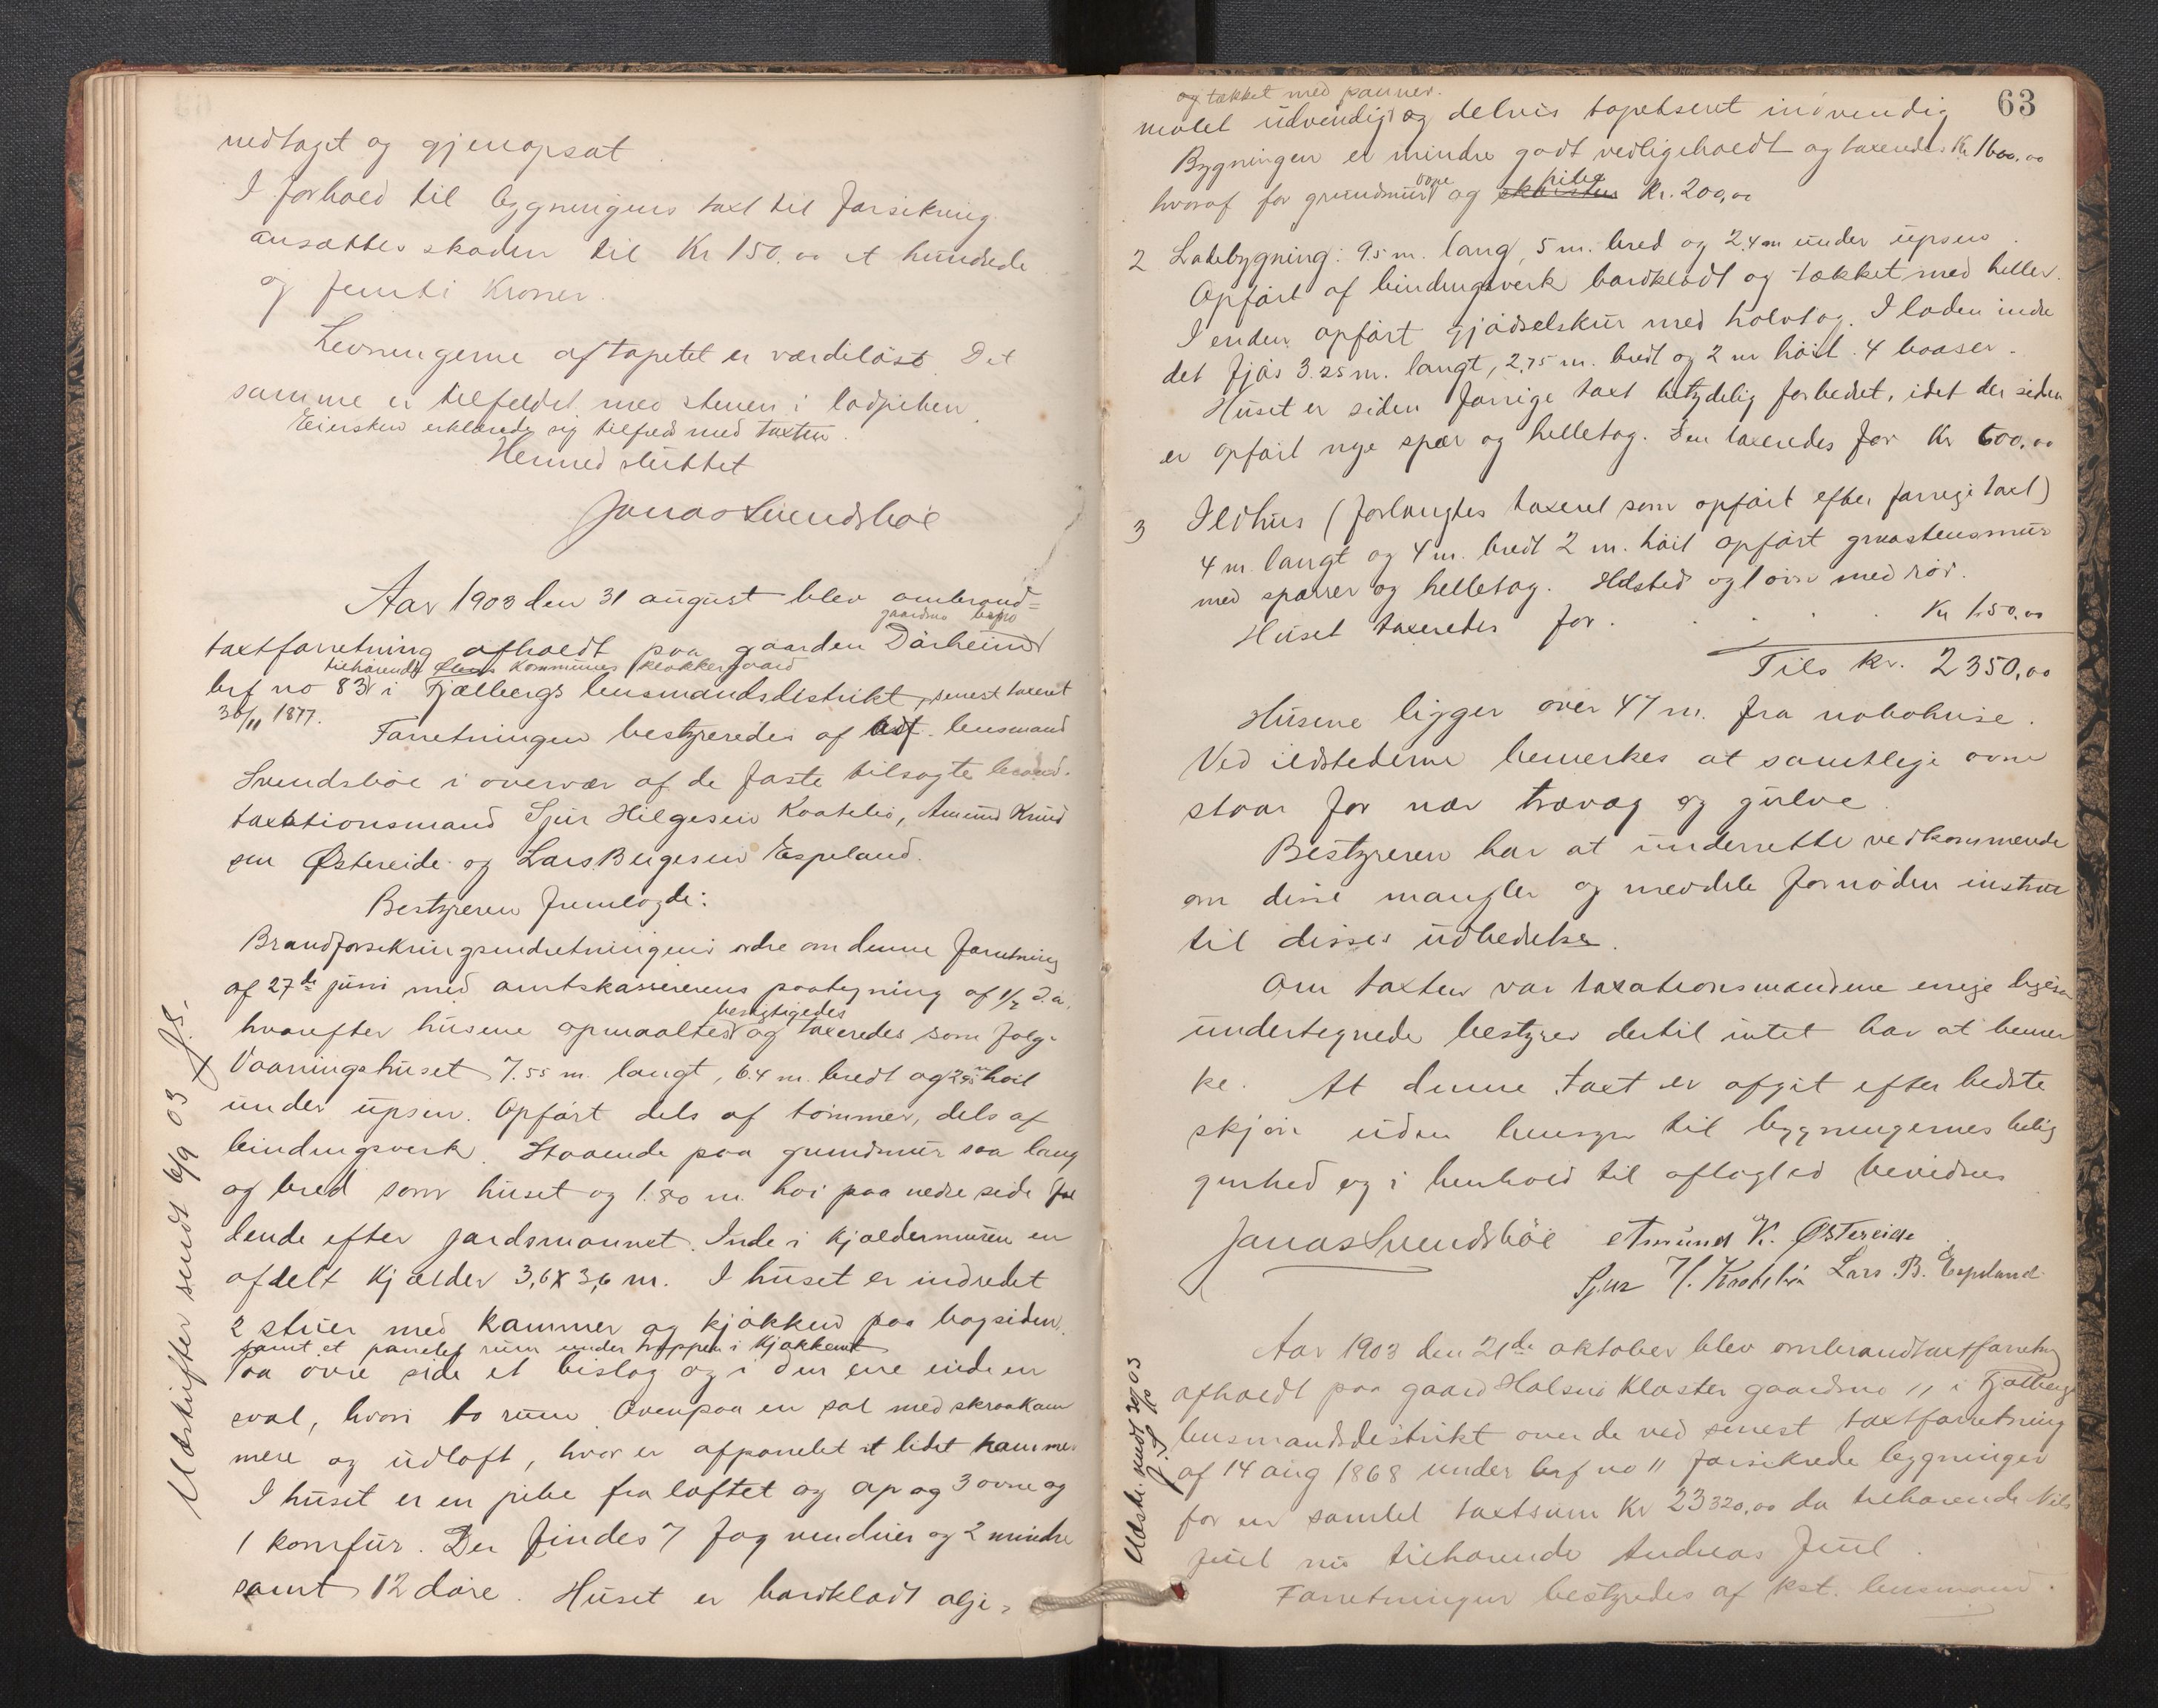 nedtaget og gjenopsat.
I forhold til bygningens taxt til forsikring
ansættes skaden til Kr 150.00 et hundrede
og femti Kroner.
Levningerne af tapetet er værdiløst. Det
samme er tilfeldet med stenen i ladpiben.
Eiersken erklærede sig tilfreds med taxten.
Hermed sluttet
Jonas Svendsbøe
Aar 1903 den 31 august blev ombrand=
gaardsno brno
taxtforretning afholdt paa gaarden Dårheim
tilhørende Ølens Kommunes klokkergaard
brf no 83 i Fjælbergs lensmandsdistrikt, senest taxeret
30/11 1877.
Forretningen bestyredes af kst. lensmand
Svendsbøe i overvær af de faste tilsagte brand-
taxationsmænd Sjur Hilgesen Kaatebø, Amund Knud
sen Østereide og Lars Bergesen Espeland.
Bestyreren fremlagde:
Brandforsikringsindretningens ordre om denne forretning
af 27de juni med amtskassererens paategning af 1/7 d.a.
besigtigedes
hvorefter husene opmaaltes og taxeredes som følg.
Vaaningshuset 7.55 m. langt, 6.4 m. bredt og 2.95 m høit
under upsen. Opført dels af tømmer, dels af
bindingsverk. Staaende paa grundmur saa lang
og bred som huset og 1.80 m. høi paa nedre side fal
dende efter jordsmonnet. Inde i kjældermuren en
afdelt kjælder 3,6 x 3,6 m. I huset er indredet
2 stuer med kammer og kjøkken paa bagsiden.
samt et panelet rum under trappen i kjøkkenet
Paa øvre side et bislag og i den ene ende en
sval, hvori to rum. Ovenpaa en sal med skraakam
mere og udloft, hvor er afpanelet et lidet kammer
I huset er en pibe fra loftet og op og 3 ovne og
1 komfur. Der findes 7 fag vinduer og 2 mindre
samt 12 døre. Huset er bordklædt olje=
Udskrifter sendt 6/9 03 J.S.
63
og tækket med panner.
malet udvendig og delvis tapetseret indvendig
Bygningen er mindre godt vedligeholdt og taxeredes Kr 1600.00
ovne pibe
hvoraf for grundmur og skorsten Kr. 200,00
2 Ladebygning: 9.5 m. lang, 5 m. bred og 2.4 m under upsen.
Opført af bindingsverk bordklædt og tækket med heller.
I enden opført gjødselskur med halvtag. I laden indre
det fjøs 3.25 m. langt, 2,75 m. bredt og 2 m høit. 4 baaser.
Huset er siden forrige taxt betydelig forbedret, idet der siden
er opført nye spær og helletag. Den taxeredes for Kr 600,00
3 Ildhus (forlangtes taxeret som opført efter forrige taxt)
4 m. langt og 4 m. bredt 2 m. høit opført graastensmur
med sparrer og helletag. Ildsted og 1 ovn med rør.
Huset taxeredes for . . . . Kr 150,00
Tils Kr. 2350,00
Husene ligger over 47 m. fra nabohuse.
Ved ildstederne bemerkes at samtlige ovne
staar for nær trævæg og gulve.
Bestyreren har at underrette vedkommende
om disse mangler og meddele fornøden instrux
til disses udbedrelse.
Om taxten var taxationsmændene enige ligesom
undertegnede bestyrer dertil intet har at bemer
ke. At denne taxt er afgit efter bedste
skjøn uden hensyn til bygningernes belig
genhed og i henhold til aflagt ed bevidnes
Jonas Svendsbøe Amund K. Østereide
Sjur H. Kaatebø Lars B. Espeland
Aar 1903 den 21de oktober blev ombrandtaxtforretng
afholdt paa gaard Halsnø Kloster gaardsno 11 i Fjælbergs
lensmandsdistrikt over de ved senest taxtforretning
af 14 aug 1868 under brf no 11 forsikrede bygninger
for en samlet taxtsum Kr 23320,00 da tilhørende Nils
Juel nu tilhørende Andreas Juel.
Forretningen bestyredes af kst. lensmand
Udskr. sendt 30/10 03
J.S